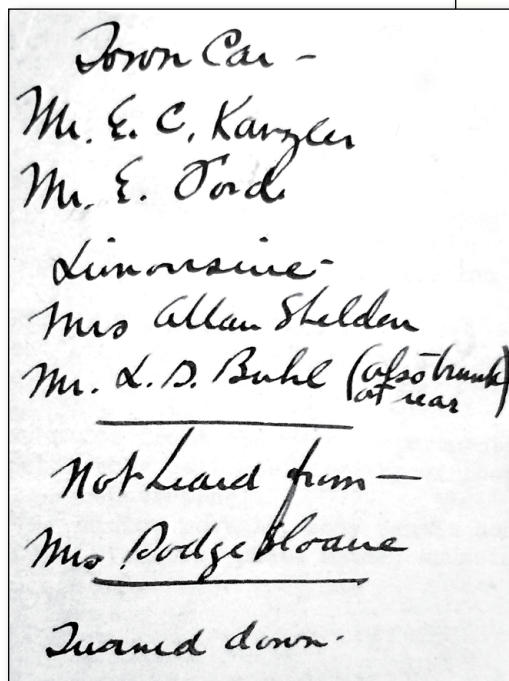 Town Car -
Mr. E. C. Kanzler
Mr. E. Ford
Limousine -
Mrs Allan Shelden
Mr. L. D. Buhl (also trunk
at rear)
Not heard from —
Mrs Dodge Sloane
Turned down.